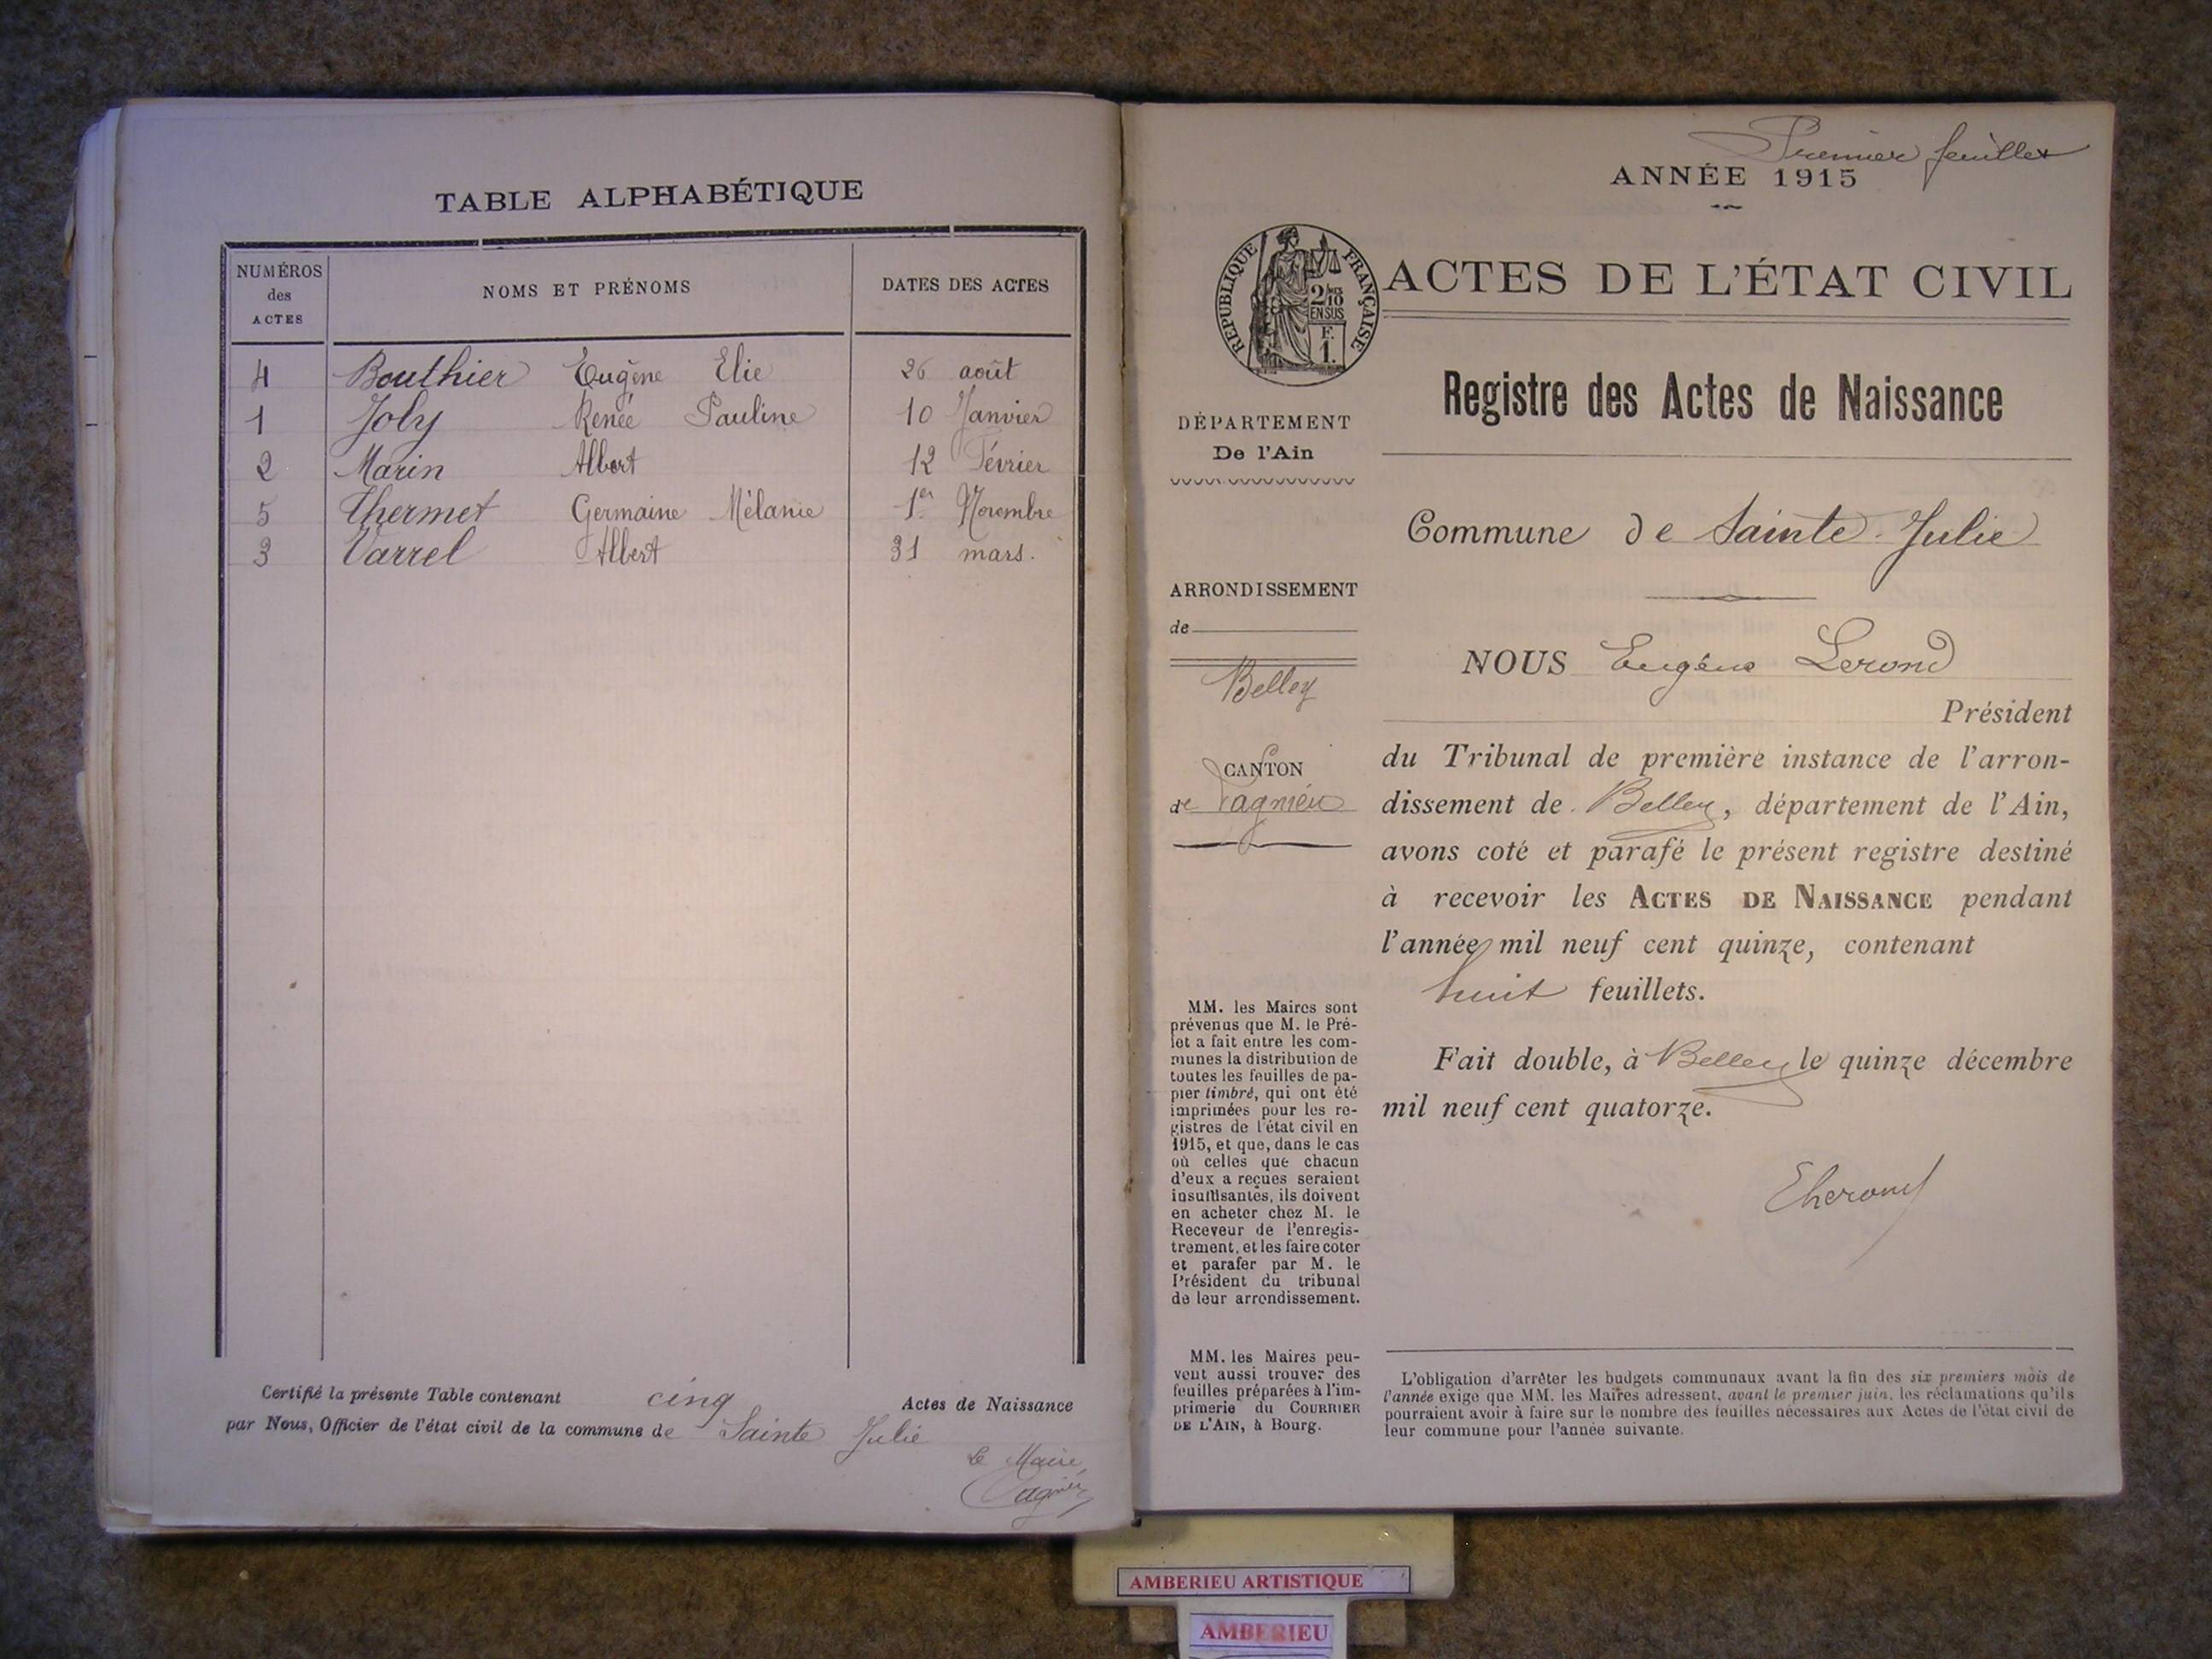 TABLE ALPHABÉTIQUE
NUMÉROS
des
ACTES
NOMS ET PRÉNOMS
DATES DES ACTES
4 Bouthier Eugène Elie 26 août
1 Joly Renée Pauline 10 Janvier
2 Marin Albert 12 Février
5 Thermet Germaine Mélanie 1er Novembre
3 Varrel Albert 31 mars.
Certifié la présente Table contenant cinq Actes de Naissance
par Nous, Officier de l'état civil de la commune de Sainte Julie
Le Maire,
Premier feuillet
ANNÉE 1915
RÉPUBLIQUE FRANÇAISE
2/10
EN SUS
F.
1.
ACTES DE L'ÉTAT CIVIL
Registre des Actes de Naissance
DÉPARTEMENT
De l'Ain
Commune de Sainte-Julie
ARRONDISSEMENT
de
Belley
CANTON
de Lagnieu
NOUS Eugène Lerond
Président
du Tribunal de première instance de l'arron-
dissement de Belley, département de l'Ain,
avons coté et parafé le présent registre destiné
à recevoir les ACTES DE NAISSANCE pendant
l'année mil neuf cent quinze, contenant
huit feuillets.
Fait double, à Belley le quinze décembre
mil neuf cent quatorze.
MM. les Maires sont
prévenus que M. le Pré-
fet a fait entre les com-
munes la distribution de
toutes les feuilles de pa-
pier timbré, qui ont été
imprimées pour les re-
gistres de l'état civil en
1915, et que, dans le cas
où celles que chacun
d'eux a reçues seraient
insuffisantes, ils doivent
en acheter chez M. le
Receveur de l'enregis-
trement, et les faire coter
et parafer par M. le
Président du tribunal
de leur arrondissement.
MM. les Maires peu-
vent aussi trouver des
feuilles préparées à l'im-
primerie du COURRIER
DE L'AIN, à Bourg.
L'obligation d'arrêter les budgets communaux avant la fin des six premiers mois de
l'année exige que MM. les Maires adressent, avant le premier juin, les réclamations qu'ils
pourraient avoir à faire sur le nombre des feuilles nécessaires aux Actes de l'état civil de
leur commune pour l'année suivante.
AMBERIEU ARTISTIQUE
AMBERIEU